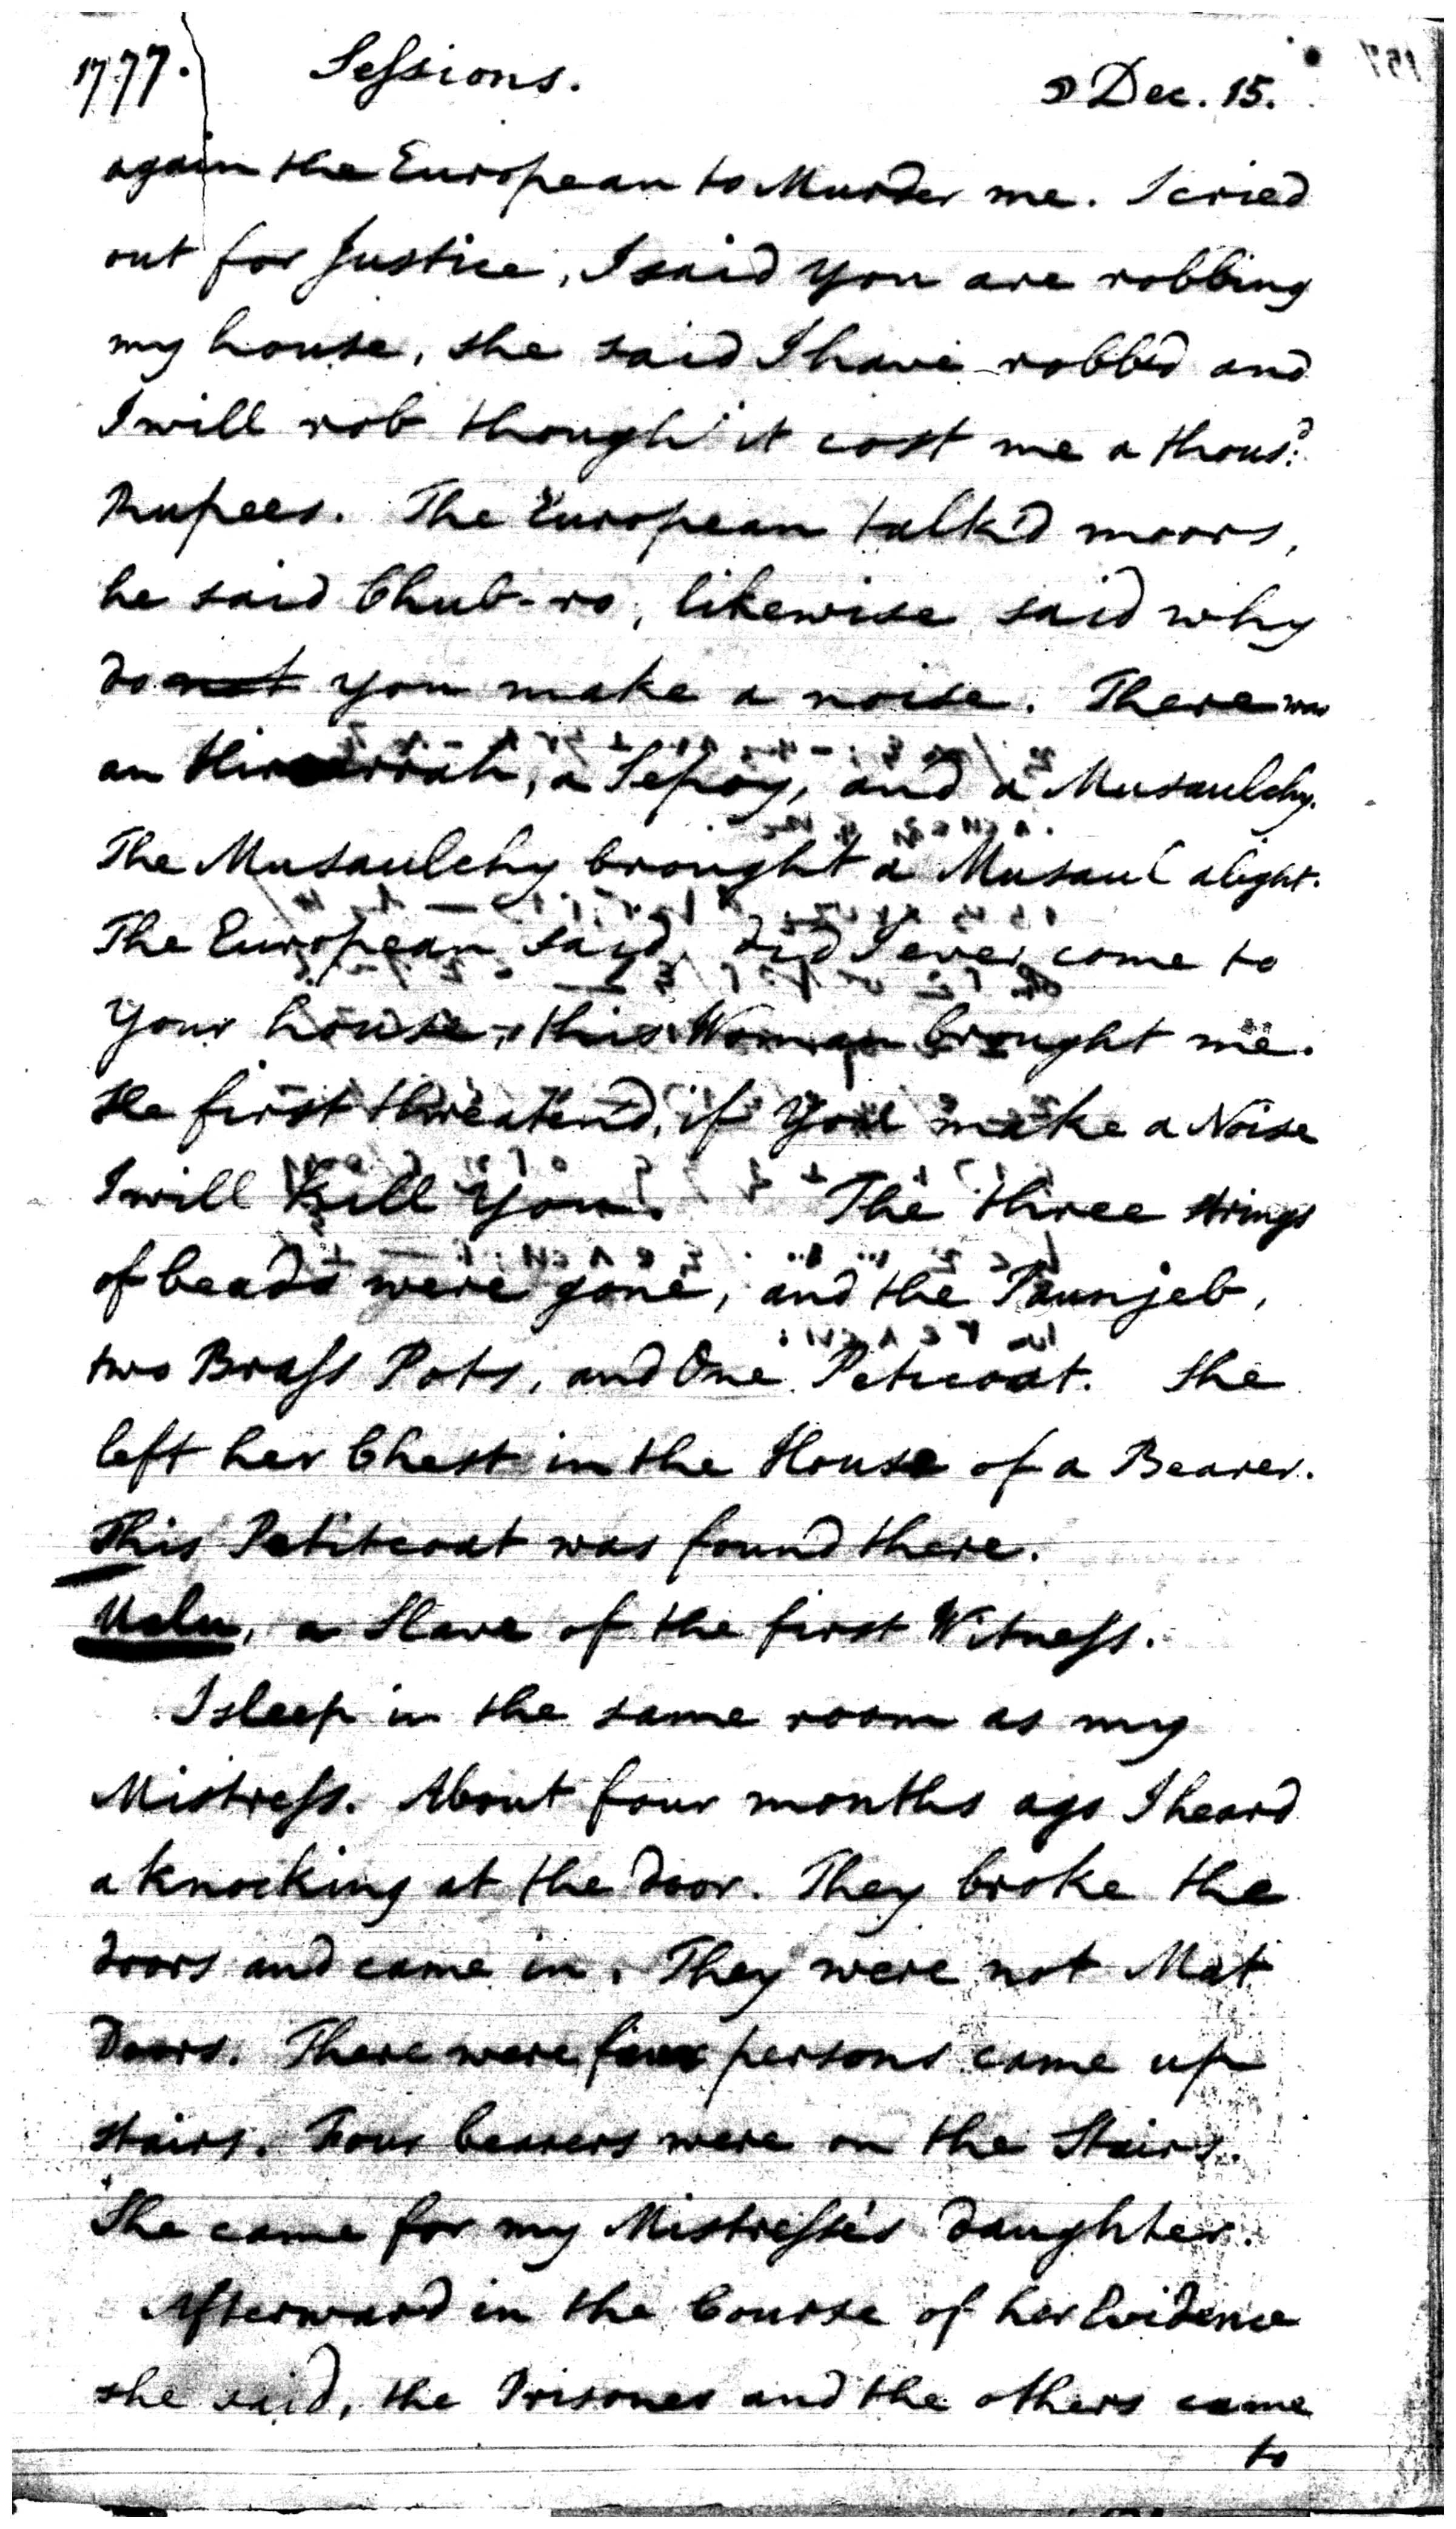 1777. Sessions. ☽ Dec. 15.
again the European to Murder me. I cried
out for Justice, I said you are robbing
my house, she said I have robb'd and
I will rob though it cost me a thous.d
Rupees. The European talk'd moors,
he said Chub-ro, likewise said why
do not you make a noise. There was
an Hircarrah, a Sepoy, and a Musaulchy.
The Musaulchy brought a Musaul alight.
The European said, did I ever come to
your house, this Woman brought me.
He first threatend, if you make a Noise
I will Kill you. The three strings
of beads were gone, and the Paunjeb,
two Brass Pots, and One Peticoat. She
left her Chest in the House of a Bearer.
This Petitcoat was found there.
a Slave of the first Witness.
I sleep in the same room as my
Mistress. About four months ago I heard
a knocking at the door. They broke the
doors and came in. They were not Mat
Doors. There were four persons came up
stairs. Four bearers were on the Stairs.
She came for my Mistresse's daughter.
Afterward in the Course of her Evidence
she said, the Prisoner and the others came
to